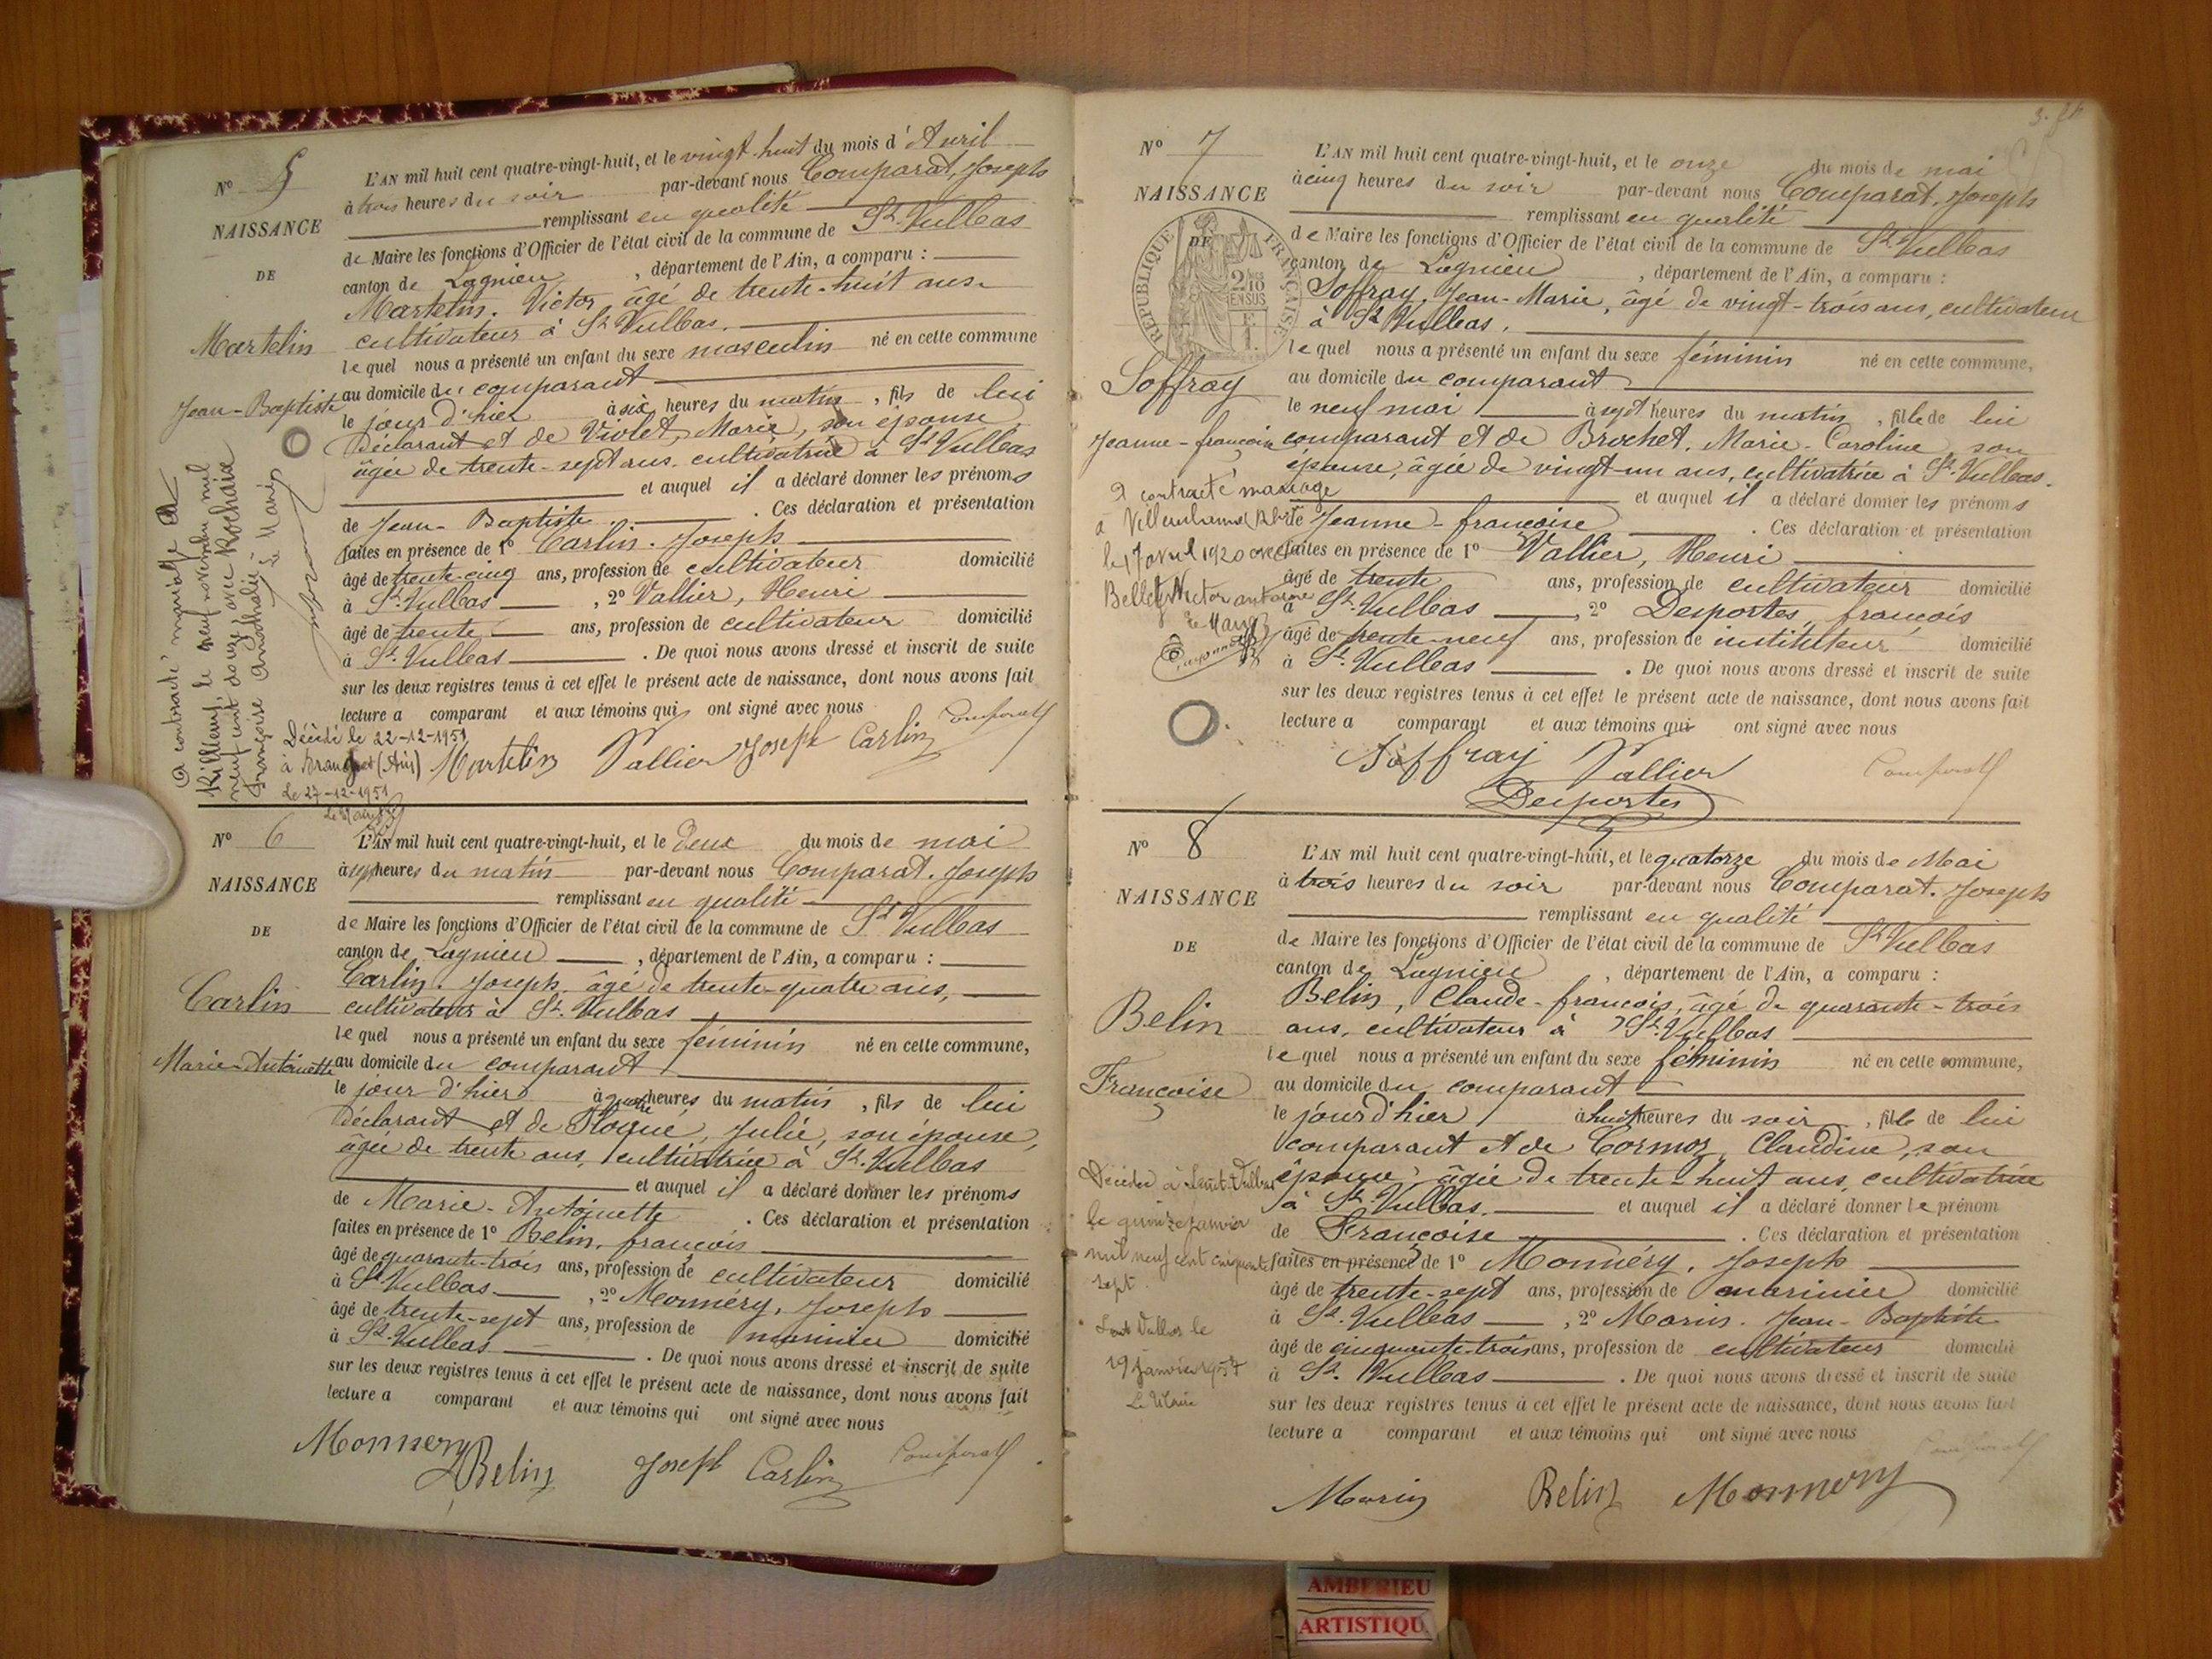 N° 5
NAISSANCE
DE
Martelin
Jean-Baptiste
L'AN mil huit cent quatre-vingt-huit, et le vingt-huit du mois d'Avril
à trois heures du soir par-devant nous Comparat, Joseph
remplissant en qualité
de Maire les fonctions d'Officier de l'état civil de la commune de St Vulbas
canton de Lagnieu, département de l'Ain, a comparu :
Martelin, Victor, âgé de trente-huit ans
cultivateur à St Vulbas.
lequel nous a présenté un enfant du sexe masculin né en cette commune
au domicile du comparant
le jour d'hier à six heures du matin, fils de lui
déclarant et de Violet, Marie, son épouse
âgée de trente-sept ans, cultivatrice à St Vulbas
et auquel il a déclaré donner les prénoms
de Jean-Baptiste. Ces déclaration et présentation
faites en présence de 1° Carlin, Joseph
âgé de trente-cinq ans, profession de cultivateur domicilié
à St. Vulbas, 2° Vallier, Henri
âgé de trente ans, profession de cultivateur domicilié
à St. Vulbas. De quoi nous avons dressé et inscrit de suite
sur les deux registres tenus à cet effet le présent acte de naissance, dont nous avons fait
lecture a comparant et aux témoins qui ont signé avec nous
Martelin Vallier Joseph Carlin Comparat
A contracté mariage à
Rillieux, le neuf novembre mil
neuf cent douze, avec Rochaix
Françoise
Le Maire
Décédé le 22-12-1951
à (Ain)
Le 27-12-1951
Le Maire
N° 6
NAISSANCE
DE
Carlin
Marie-Antoinette
L'AN mil huit cent quatre-vingt-huit, et le deux du mois de mai
à sept heures du matin par-devant nous Comparat, Joseph
remplissant en qualité
de Maire les fonctions d'Officier de l'état civil de la commune de St Vulbas
canton de Lagnieu, département de l'Ain, a comparu :
Carlin, Joseph, âgé de trente-quatre ans,
cultivateur à St. Vulbas
lequel nous a présenté un enfant du sexe féminin né en cette commune,
au domicile du comparant
le jour d'hier à quatre heures du matin, fils de lui
déclarant et de Julie, son épouse,
âgée de trente ans, cultivatrice à St. Vulbas
et auquel il a déclaré donner les prénoms
de Marie-Antoinette. Ces déclaration et présentation
faites en présence de 1° Belin, françois
âgé de quarante-trois ans, profession de cultivateur domicilié
à St Vulbas, 2° Monnéry, Joseph
âgé de trente-sept ans, profession de marinier domicilié
à St. Vulbas. De quoi nous avons dressé et inscrit de suite
sur les deux registres tenus à cet effet le présent acte de naissance, dont nous avons fait
lecture a comparant et aux témoins qui ont signé avec nous
Monnery Belin Joseph Carlin Comparat
N° 7
NAISSANCE
DE
RÉPUBLIQUE FRANÇAISE
Soffray
Jeanne-françoise
L'AN mil huit cent quatre-vingt-huit, et le onze du mois de mai
à cinq heures du soir par-devant nous Comparat, Joseph
remplissant en qualité
de Maire les fonctions d'Officier de l'état civil de la commune de St Vulbas
canton de Lagnieu, département de l'Ain, a comparu :
Soffray, Jean-Marie, âgé de vingt-trois ans, cultivateur
à St Vulbas,
lequel nous a présenté un enfant du sexe féminin né en cette commune,
au domicile du comparant
le neuf mai à sept heures du matin, fille de lui
comparant et de Brochet, Marie-Caroline son
épouse, âgée de vingt-un ans, cultivatrice à St. Vulbas.
et auquel il a déclaré donner les prénoms
Jeanne-françoise. Ces déclaration et présentation
faites en présence de 1° Vallier, Henri
âgé de trente ans, profession de cultivateur domicilié
à St. Vulbas, 2° Desportes, françois
âgé de trente-neuf ans, profession de instituteur domicilié
à St. Vulbas. De quoi nous avons dressé et inscrit de suite
sur les deux registres tenus à cet effet le présent acte de naissance, dont nous avons fait
lecture a comparant et aux témoins qui ont signé avec nous
Soffray Vallier Comparat
Desportes
a contracté mariage
à Villeurbanne
le 17 avril 1920 avec
Victor antoine
Le Maire
N° 8
NAISSANCE
DE
Belin
Françoise
L'AN mil huit cent quatre-vingt-huit, et le quatorze du mois de Mai
à trois heures du soir par-devant nous Comparat, Joseph
remplissant en qualité
de Maire les fonctions d'Officier de l'état civil de la commune de St Vulbas
canton de Lagnieu, département de l'Ain, a comparu :
Belin, Claude-françois, âgé de quarante-trois
ans, cultivateur à St. Vulbas
lequel nous a présenté un enfant du sexe féminin né en cette commune,
au domicile du comparant
le jour d'hier à huit heures du soir, fille de lui
comparant et de Cormoz, Claudine, son
épouse, âgée de trente-huit ans, cultivatrice
à St. Vulbas. et auquel il a déclaré donner le prénom
de Françoise. Ces déclaration et présentation
faites en présence de 1° Monnéry, Joseph
âgé de trente-sept ans, profession de marinier domicilié
à St. Vulbas, 2° Marin, Jean-Baptiste
âgé de cinquante-trois ans, profession de cultivateur domicilié
à St. Vulbas. De quoi nous avons dressé et inscrit de suite
sur les deux registres tenus à cet effet le présent acte de naissance, dont nous avons fait
lecture a comparant et aux témoins qui ont signé avec nous
Marin Belin Monnery Comparat
Décédée à Saint-Vulbas
le quinze janvier
mil neuf cent cinquante
sept.
Saint Vulbas le
19 janvier 1957
Le Maire
AMBERIEU
ARTISTIQU